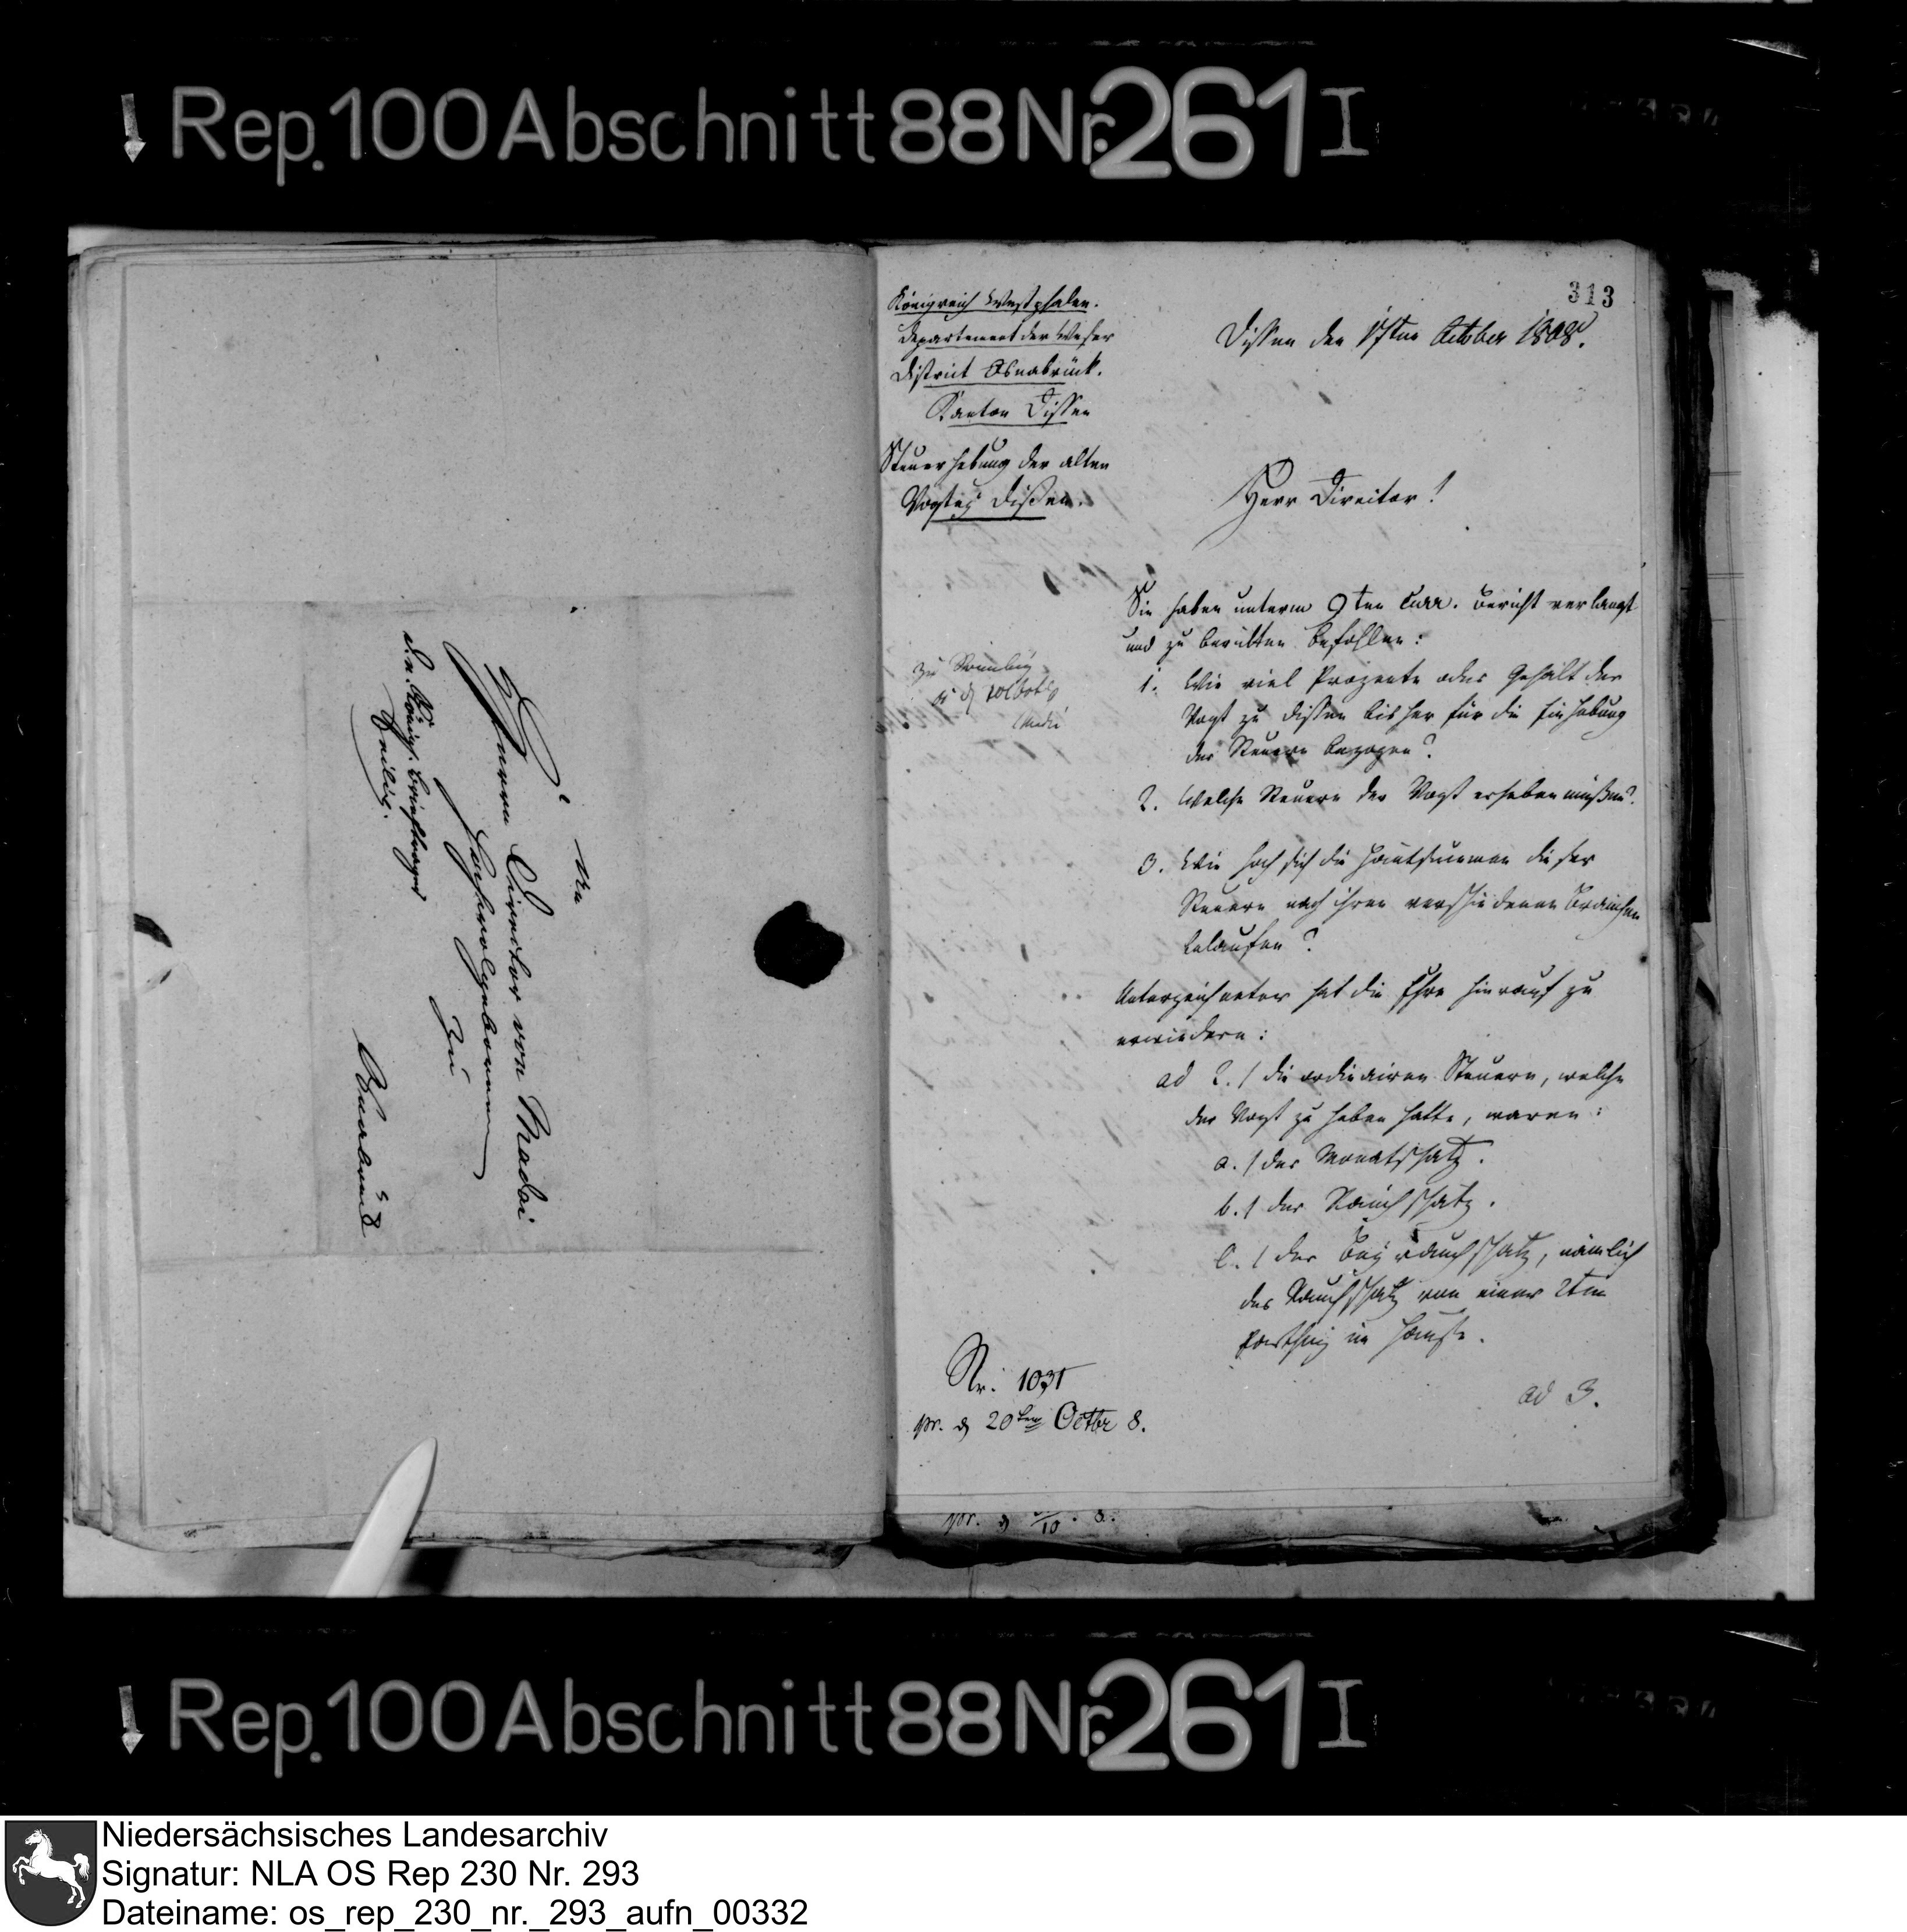 Rep. 100 Abschnitt 88 Nr. 261 I
An
Herrn Director von Madai
Hochwolgebornen
zu
Osnabrück
d. Königl. Briefträger
Heilig.
313
Königreich Westphalen.
Departement der Weser
District Osnabrück.
Kanton Dissen
Steuerhebung der alten
Vogtey Dissen.
Dissen den October 1808.
Herr Director!
Sie haben unterm 9ten curr. Bericht verlangt
und zu berichten befohlen:
1. Wie viel Prozente oder Gehalt der
Vogt zu Dissen bisher für die Einhebung
der Steuern bezogen?
2. Welche Steuern der Vogt erheben müssen?
3. Wie hoch sich die Hauptsummen dieser
Steuern nach ihren verschiedenen Branchen
belaufen?
Unterzeichneter hat die Ehre hierauf zu
erwiedern:
ad 2./ die ordinairen Steuern, welche
der Vogt zu heben hatte, waren:
a./ der Monatschatz.
b./ der Rauchschatz.
c./ der Beyrauchschatz, nämlich
der Rauchschatz von einer 2ten
im Hause.
ad 3.
Nr. 1031
pr. d 20ten Octbr 8.
Rep. 100 Abschnitt 88 Nr. 261 I
Niedersächsisches Landesarchiv
Signatur: NLA OS Rep 230 Nr. 293
Dateiname: os_rep_230_nr._293_aufn_00332